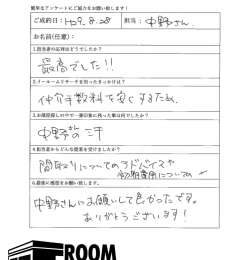 簡単なアンケートにご協力をお願い致します！
ご成約日：H29.8.28 担当：中野さん
お名前(任意)：
1.担当者の応対はどうでしたか？
最高でした!!
2.イールームリサーチを知ったきっかけは？
仲介手数料を安くするため
3.お部屋探しの中で一番印象に残った事は何でしたか？
中野さんの汗
4.担当者からどんな提案を受けましたか？
間取りについてのアドバイスや
初期費用についての
6.最後に感想をお願い致します。
中野さんにお願いして良かったです。
ありがとうございます！
ROOM